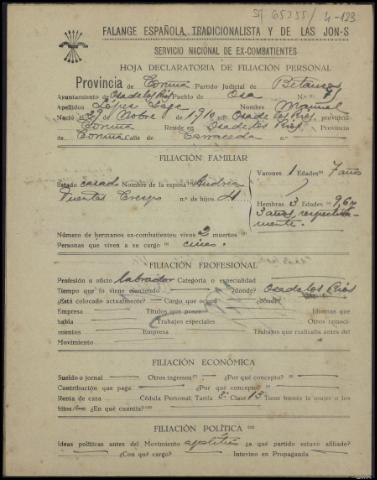 FALANGE ESPAÑOLA TRADICIONALISTA Y DE LAS JON-S
SERVICIO NACIONAL DE EX-COMBATIENTES
HOJA DECLARATORIA DE FILIACIÓN PERSONAL
Provincia de Coruña Partido Judicial de Betanzos
Ayuntamiento de Oza de los Ríos Pueblo de Oza N.º
Apellidos López Nombre Manuel
Nació de 1910 en Oza de los Ríos, provincia
Coruña Reside en Oza de los Ríos Provincia
Coruña Calle de
FILIACIÓN FAMILIAR
Estado casado Nombre de la esposa
n.º de hijos 4
Varones 1 Edades 7 años
Hembras 3 Edades 9, 6 y
3 años, respectiva-
mente.
Número de hermanos ex-combatientes: vivos 2 muertos
Personas que viven a su cargo cinco.
FILIACIÓN PROFESIONAL
Profesión u oficio labrador Categoría o especialidad
Tiempo que lo viene ejerciendo ¿dónde? Oza de los Ríos
¿Está colocado actualmente? Cargo que ocupa ¿dónde?
Empresa Títulos que posee Idiomas que
habla Trabajos especiales Otros conoci-
mientos Empresa Trabajos que realizaba antes del
Movimiento
FILIACIÓN ECONÓMICA
Sueldo o jornal Otros ingresos ¿Por qué concepto?
Contribución que paga ¿Por qué concepto?
Renta de casa Cédula Personal: Tarifa Clase 13 Tiene bienes la mujer o los
hijos ¿En qué cuantía?
FILIACIÓN POLÍTICA
Ideas políticas antes del Movimiento apolítico ¿a qué partido estuvo afiliado?
¿Con qué cargo? Intervino en Propaganda